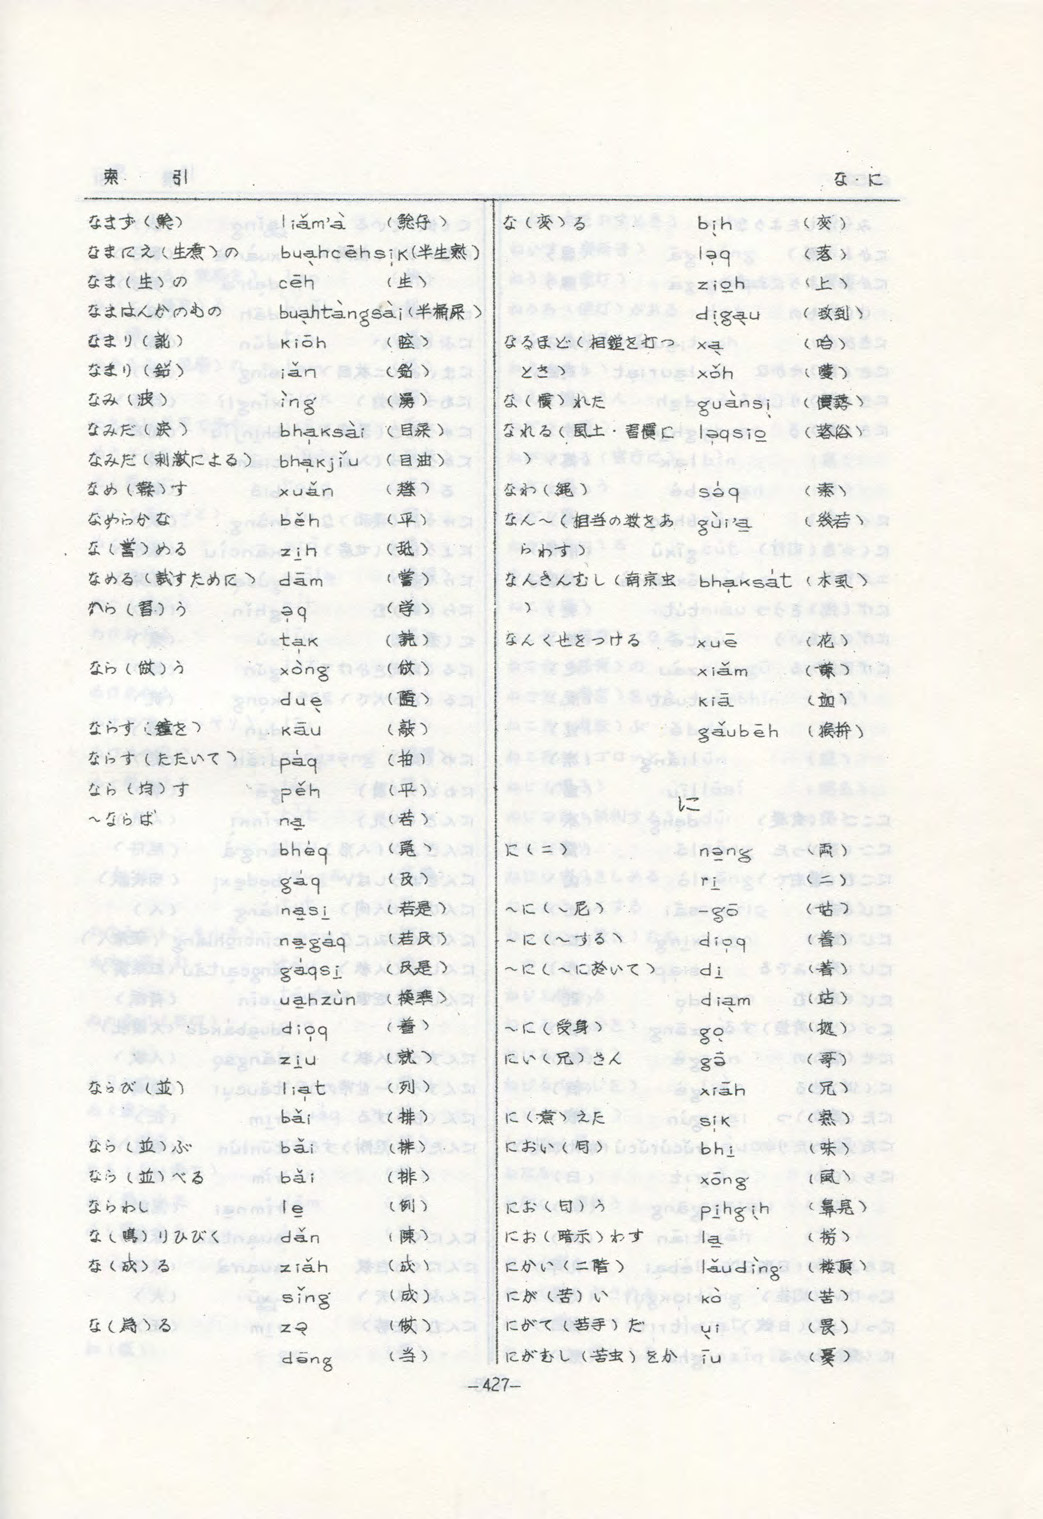 索 引
な・に
なまず(鯰) liǎm'à (鯰仔)
なまにえ(生煮)の buạhcēhsịk(半生熟)
なま(生)の cēh (生)
なまはんかのもの buạhtàngsài(半桶屎)
なまり(訛) kiōh (腔)
なまり(鉛) iǎn (鉛)
なみ(波) ìng (湧)
なみだ(涙) bhạksài (目屎)
なみだ(刺激による) bhạkjǐu (目油)
なめ(鞣)す xuǎn
なめらかな běh (平)
な(嘗)める zi̱h (舐)
なめる(試すために) dām (嘗)
なら(習)う ạq (学)
tạk (読)
なら(倣)う xòng (倣)
duẹ
ならす(鐘を) kāu (敲)
ならす(たたいて) páq (拍)
なら(均)す pěh (平)
～ならば na̱ (若)
bhéq
gáq (及)
na̱si̱ (若是)
na̱gáq (若及)
gáqsi̱ (及是)
ua̱hzùn (換準)
diọq (着)
zi̱u (就)
ならび(並) liạt (列)
bǎi (排)
なら(並)ぶ bǎi (排)
なら(並)べる bǎi (排)
ならわし le̱ (例)
な(鳴)りひびく dǎn (陳)
な(成)る ziǎh (成)
sǐng (成)
な(為)る
dōng (当)
な(変)る bịh (変)
lạq (落)
zio̱h (上)
な(慣)れた guànsị
なるほど(相鎚を打つ xạ
とき) xǒh
なれる(風土・習慣に lạqsio̱
)
なわ(縄) sóq (索)
なん～(相当の数をあ gùi'a̱ (幾若)
らわす)
なんきんむし(南京虫 bhạksát (木虱)
)
なんくせをつける xuē (花)
xiǎm (嫌)
kiā
gǎubēh
に
に(二) nạng (両)
ri̱ (二)
～に(～尼) -gō (姑)
～に(～する) diọq (着)
～に(～に於いて) di̱
diạm (站)
～に(受身) gọ
にい(兄)さん (哥)
xiāh (兄)
に(煮)えた sịk (熟)
におい(匂) bhi̱ (味)
xōng (風)
にお(匂)う pi̱hgịh
にお(暗示)わす la̱
にかい(二階) lǎudìng (楼頂)
にが(苦)い kò (苦)
にがて(苦手)だ ụi (畏)
にがむし(苦虫)をか īu (憂)
-427-